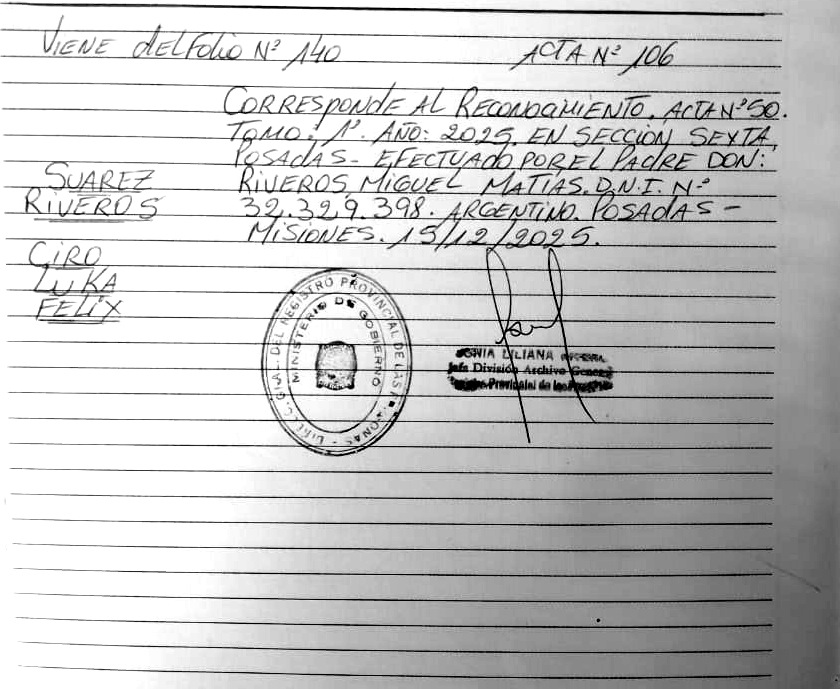 VIENE del Folio Nº 140
ACTA Nº 106
CORRESPONDE AL RECONOCIMIENTO. ACTA Nº 50.
TOMO: 1º. AÑO: 2025. EN SECCIÓN SEXTA,
POSADAS - EFECTUADO POR EL PADRE DON:
RIVEROS, MIGUEL MATIAS. D.N.I. Nº
32.329.398. ARGENTINO. POSADAS -
MISIONES. 15/12/2025.
SUAREZ
RIVEROS
CIRO
LUKA
FELIX
DIREC. GRAL. DEL REGISTRO PROVINCIAL DE LAS PERSONAS
MINISTERIO DE GOBIERNO
SONIA LILIANA
Jefa División Archivo General
Provincial de las